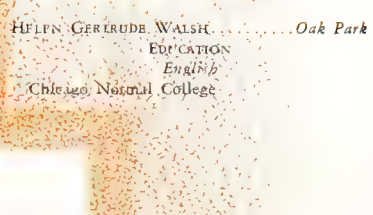 HELEN GERTRUDE WALSH..........Oak Park
EDUCATION
English
Chicago Normal College